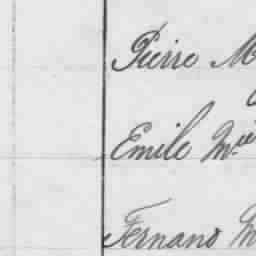 Pierre M
Emile Mie
Fernand M